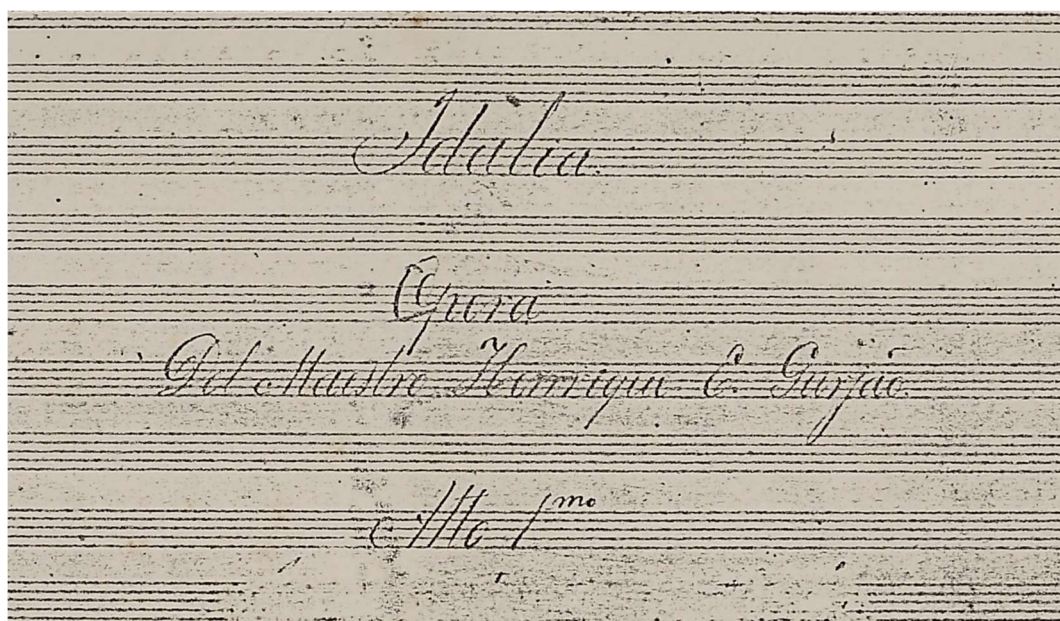 Idalia.
Opera
Del Maestro Henrique E. Gurjão.
Atto 1mo